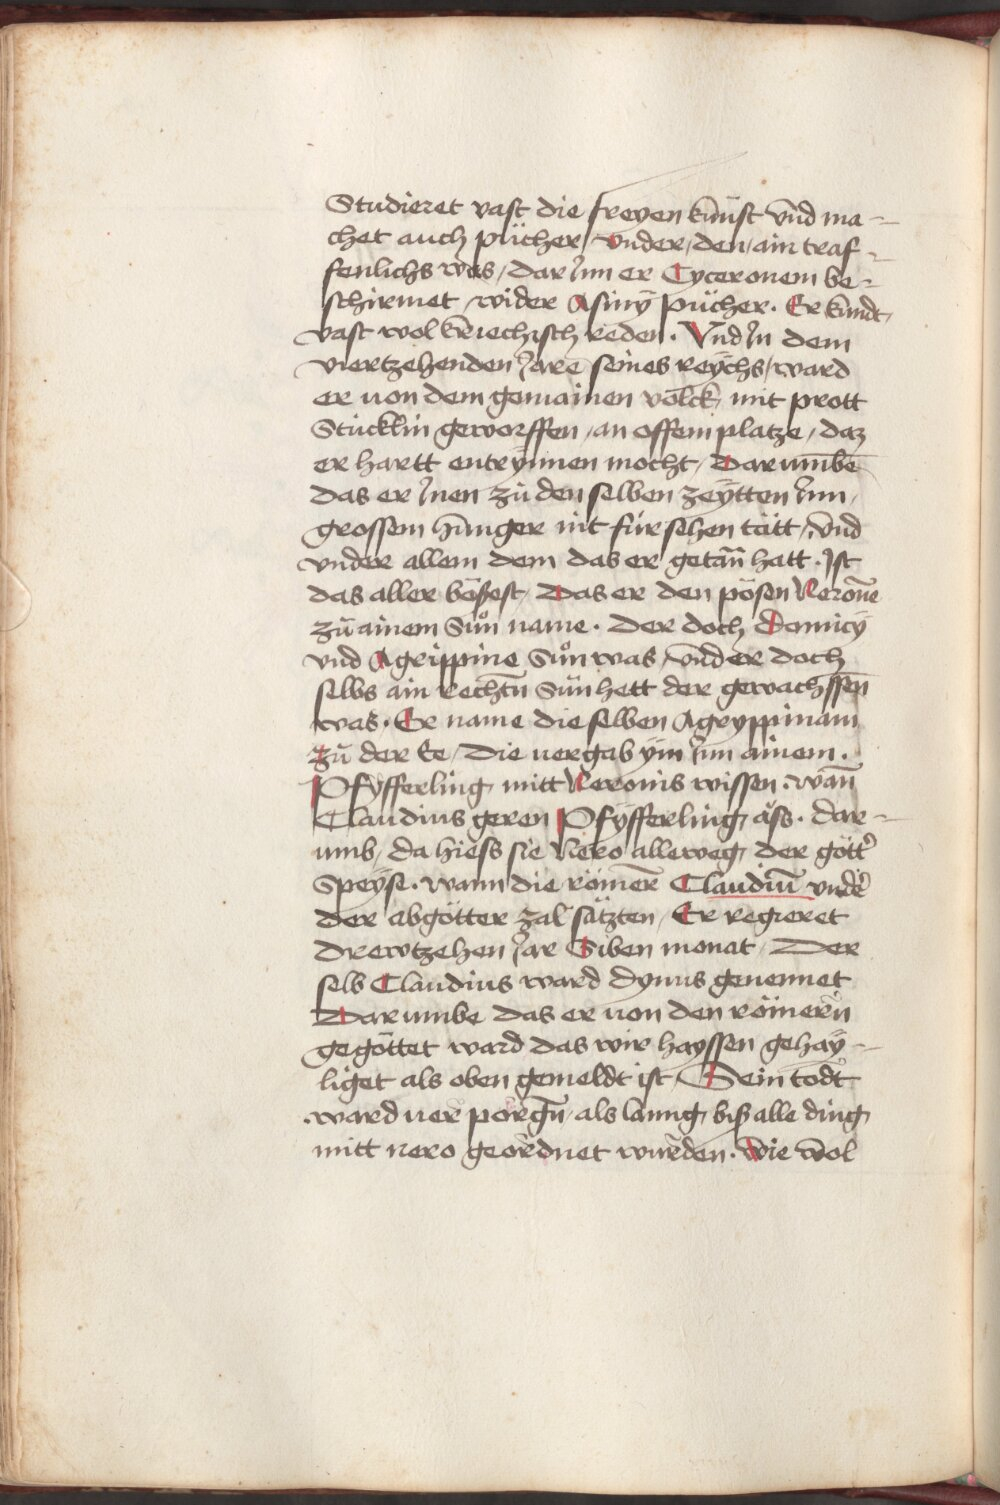 Studieret vast die freyen künst vnd ma-
chet auch pücher / vnder / den / ain traf-
fenlichs was / dar Jnn er Cyceronem be-
schirmet / wider Asinÿ pücher . Er kundt
vast wol kriechisch reden . Vnd Jn dem
viertzehenden Jare seines reÿchs / ward
er von dem gemainen volck / mit prott
Stücklin geworffen / an offem platze / daz
er hartt entrÿnnen mocht / Darumbe
das er Jnen zů den selben zeÿtten Jnn
grossem hunger nit fürsehen tätt / vnd
vnder allem dem das er getān hatt . Jst
das aller bößest / Das er den pösen Neronē
zů ainem Sůn name . Der doch Domicÿ
vnd Agrippine Sůn was / vnd er doch
selbs ain rechtn̄ Sůn hett der gewachssen
was . Er name die selben Agryppinam
zů der Ee / Die vergab ÿm Jnn ainem .
Pfÿfferling mitt Neronis wissen . wan̄
Claudius geren Pfÿfferling aͤss . dar-
umb / da hiess sie Nero alleweg / der göttʼ
Speÿse . wann die römer Claudiū vndeʼ
der abgötter zal sätzten / Er regieret
drewtzehen Jar Siben monat / Der
selb Claudius ward Dyuus genennet
Darumbe das er von den römern
gegöttet ward das wir hayssen gehaÿ-
liget als oben gemeldt ist / Sein todt
ward verporgn̄ / als lanng / biß alle ding
mitt nero geordnet wurden . Wie wol